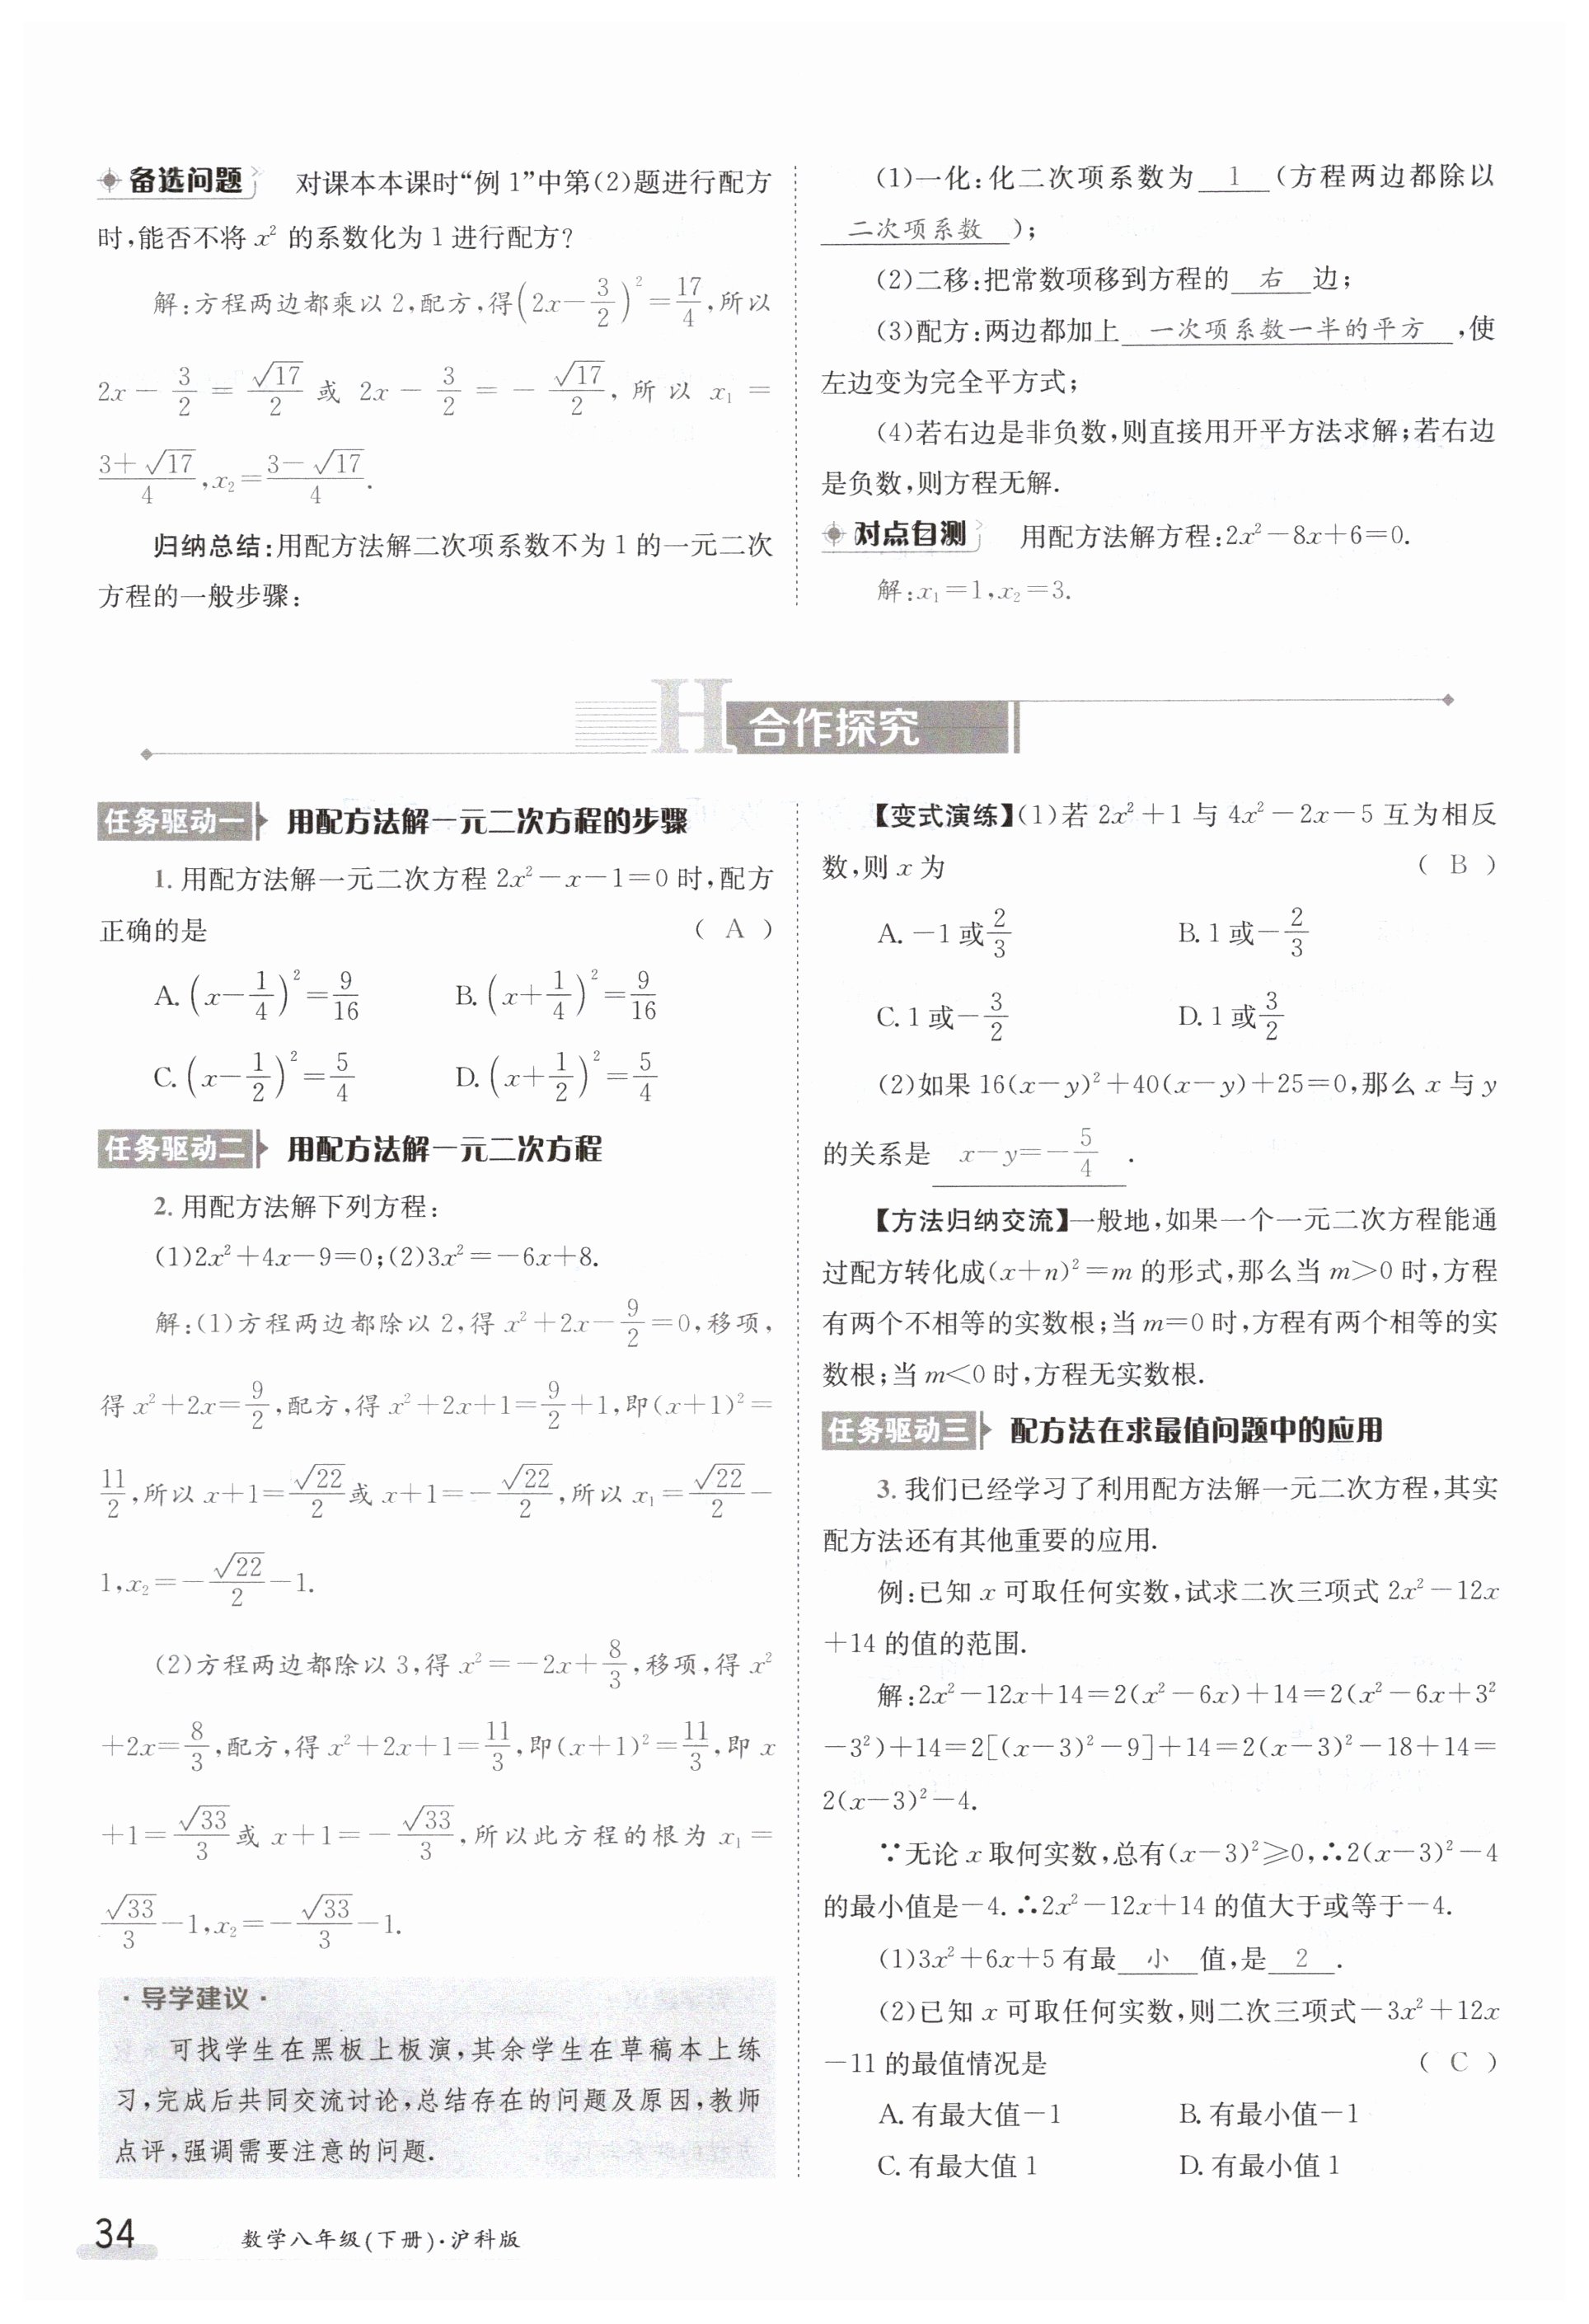 备选问题 对课本本课时“例 1”中第(2)题进行配方
时,能否不将 x² 的系数化为 1 进行配方?
解:方程两边都乘以 2,配方,得(2x-3/2)²=17/4,所以
2x-3/2=√17/2 或 2x-3/2=-√17/2,所以 x₁=
(3+√17)/4,x₂=(3-√17)/4.
归纳总结:用配方法解二次项系数不为 1 的一元二次
方程的一般步骤:
(1)一化:化二次项系数为 1 (方程两边都除以
二次项系数 );
(2)二移:把常数项移到方程的 右 边;
(3)配方:两边都加上 一次项系数一半的平方 ,使
左边变为完全平方式;
(4)若右边是非负数,则直接用开平方法求解;若右边
是负数,则方程无解.
对点自测 用配方法解方程:2x²-8x+6=0.
解:x₁=1,x₂=3.
H 合作探究
任务驱动一 用配方法解一元二次方程的步骤
1. 用配方法解一元二次方程 2x²-x-1=0 时,配方
正确的是 ( A )
A. (x-1/4)²=9/16 B. (x+1/4)²=9/16
C. (x-1/2)²=5/4 D. (x+1/2)²=5/4
任务驱动二 用配方法解一元二次方程
2. 用配方法解下列方程:
(1)2x²+4x-9=0;(2)3x²=-6x+8.
解:(1)方程两边都除以 2,得 x²+2x-9/2=0,移项,
得 x²+2x=9/2,配方,得 x²+2x+1=9/2+1,即(x+1)²=
11/2,所以 x+1=√22/2或 x+1=-√22/2,所以 x₁=√22/2-
1,x₂=-√22/2-1.
(2)方程两边都除以 3,得 x²=-2x+8/3,移项,得 x²
+2x=8/3,配方,得 x²+2x+1=11/3,即(x+1)²=11/3,即 x
+1=√33/3或 x+1=-√33/3,所以此方程的根为 x₁=
√33/3-1,x₂=-√33/3-1.
·导学建议·
可找学生在黑板上板演,其余学生在草稿本上练
习,完成后共同交流讨论,总结存在的问题及原因,教师
点评,强调需要注意的问题.
【变式演练】(1)若 2x²+1 与 4x²-2x-5 互为相反
数,则 x 为 ( B )
A. -1 或2/3 B. 1 或-2/3
C. 1 或-3/2 D. 1 或3/2
(2)如果 16(x-y)²+40(x-y)+25=0,那么 x 与 y
的关系是 x-y=-5/4 .
【方法归纳交流】一般地,如果一个一元二次方程能通
过配方转化成(x+n)²=m 的形式,那么当 m>0 时,方程
有两个不相等的实数根;当 m=0 时,方程有两个相等的实
数根;当 m<0 时,方程无实数根.
任务驱动三 配方法在求最值问题中的应用
3. 我们已经学习了利用配方法解一元二次方程,其实
配方法还有其他重要的应用.
例:已知 x 可取任何实数,试求二次三项式 2x²-12x
+14 的值的范围.
解:2x²-12x+14=2(x²-6x)+14=2(x²-6x+3²
-3²)+14=2[(x-3)²-9]+14=2(x-3)²-18+14=
2(x-3)²-4.
∵无论 x 取何实数,总有(x-3)²≥0,∴2(x-3)²-4
的最小值是-4. ∴2x²-12x+14 的值大于或等于-4.
(1)3x²+6x+5 有最 小 值,是 2 .
(2)已知 x 可取任何实数,则二次三项式-3x²+12x
-11 的最值情况是 ( C )
A. 有最大值-1 B. 有最小值-1
C. 有最大值 1 D. 有最小值 1
34 数学八年级(下册)·沪科版